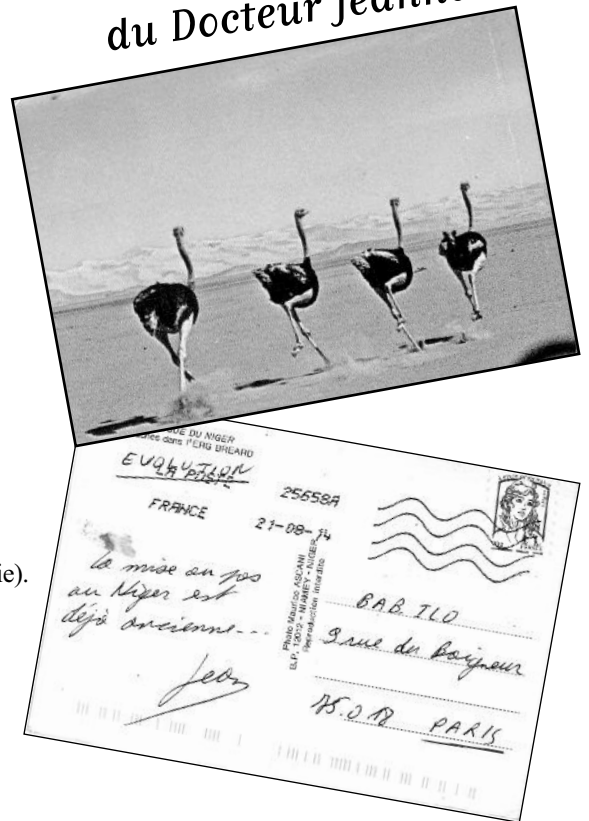 du Docteur
ie).
DU NIGER
dans l'ERG BREARD
EVOLUTION
LA POSTE
25658A
FRANCE
21-08-14
La mise au pas
au Niger est
déjà ancienne...
Jean
Photo Maurice ASCANI
B.P. 12012 - NIAMEY - NIGER
Reproduction interdite
BABILO
9 rue du Baigneur
75.018 PARIS